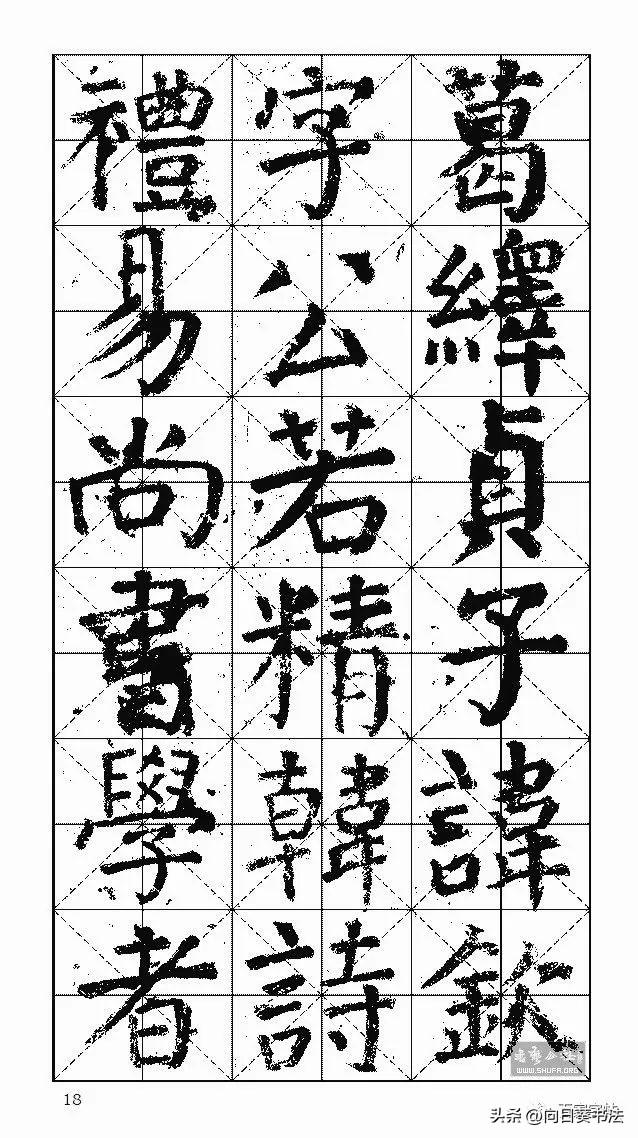 葛繹貞子諱欽
字公若精韓詩
禮易尚書學者
18
WWW.SHUFA.ORG
头条 @向日葵书法